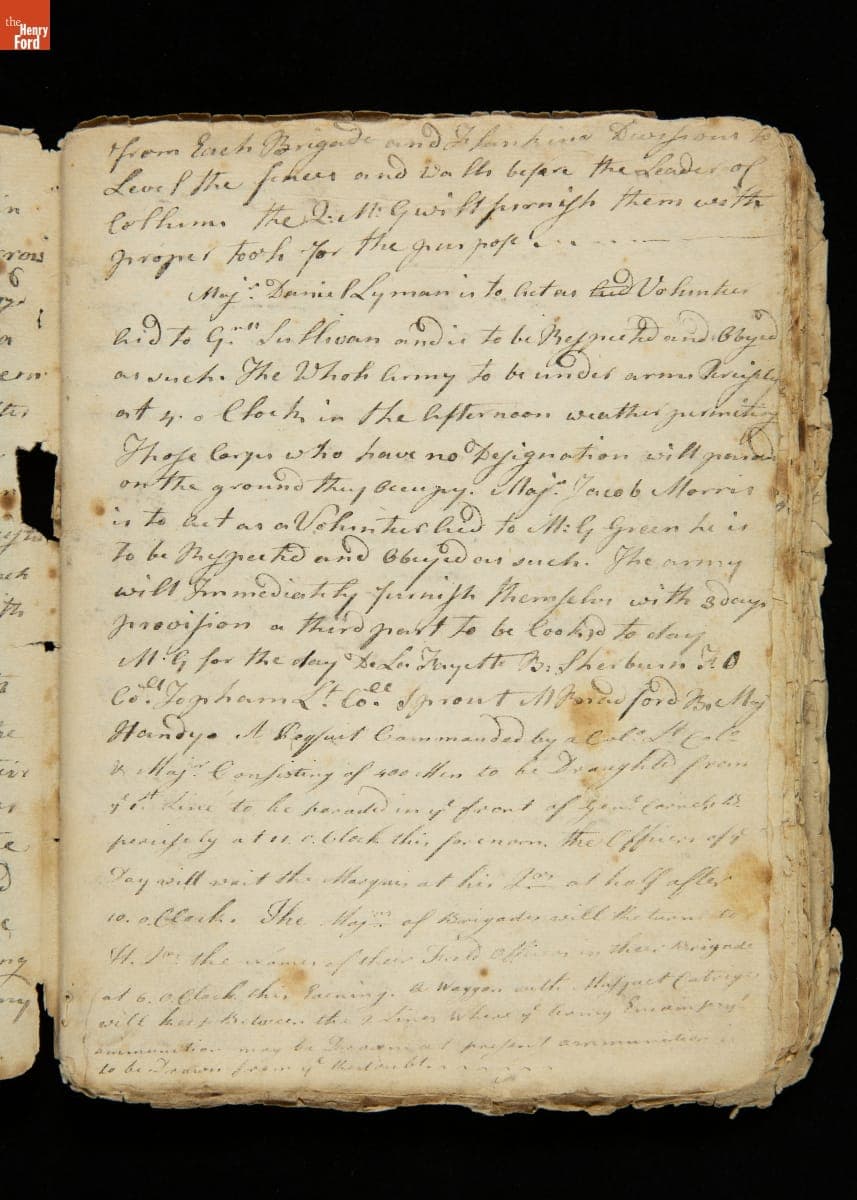 the
Henry
Ford
from Each Brigade and Flanking Divisions to
Level the fences and Walls before the Leader of
Collumn the Q: M: G will furnish them with
proper tools for the purpose
Majr. Daniel Lyman is to Act as Aid Voluntier
Aid to Gnll Sullivan and is to be Respected and Obeyed
as such. The Whole Army to be under arms Precisely
at 4. o Clock in the Afternoon weather permiting
Those Corps who have no Designation will parade
on the ground they Occupy. Majr. Jacob Morris
is to Act as a Voluntier Aid to M: G Green he is
to be Respected and Obeyed as such. The army
will Immediately furnish themselves with 3 days
provision a third part to be Cooked to day
M: G for the day De La Fayette B: Sherburn F O
Coll. Topham Lt. Coll. Sprout M Bradford B. Maj
Handy. A Piquit Commanded by a Colo. Lt Colo
& Majr. Consisting of 400 Men to be Draughted from
ye 1st Line to be paraded in ye front of Genl Cornels
percisely at 11. o. Clock this forenoon. the Officers of ye
Day will wait the Marquis at his Qrs at half after
10. o. Clock. The Majrs of Brigades will Return to
H. Qrs the names of their Field Officers in their Brigade
at 6. o. Clock this Evening. A Waggon with Musquet Catreges
will keep Between the 2 Lines Where ye Army Encamps
ammunition may be Drawn at present ammunition is
to be Drawn from ye Redoubt